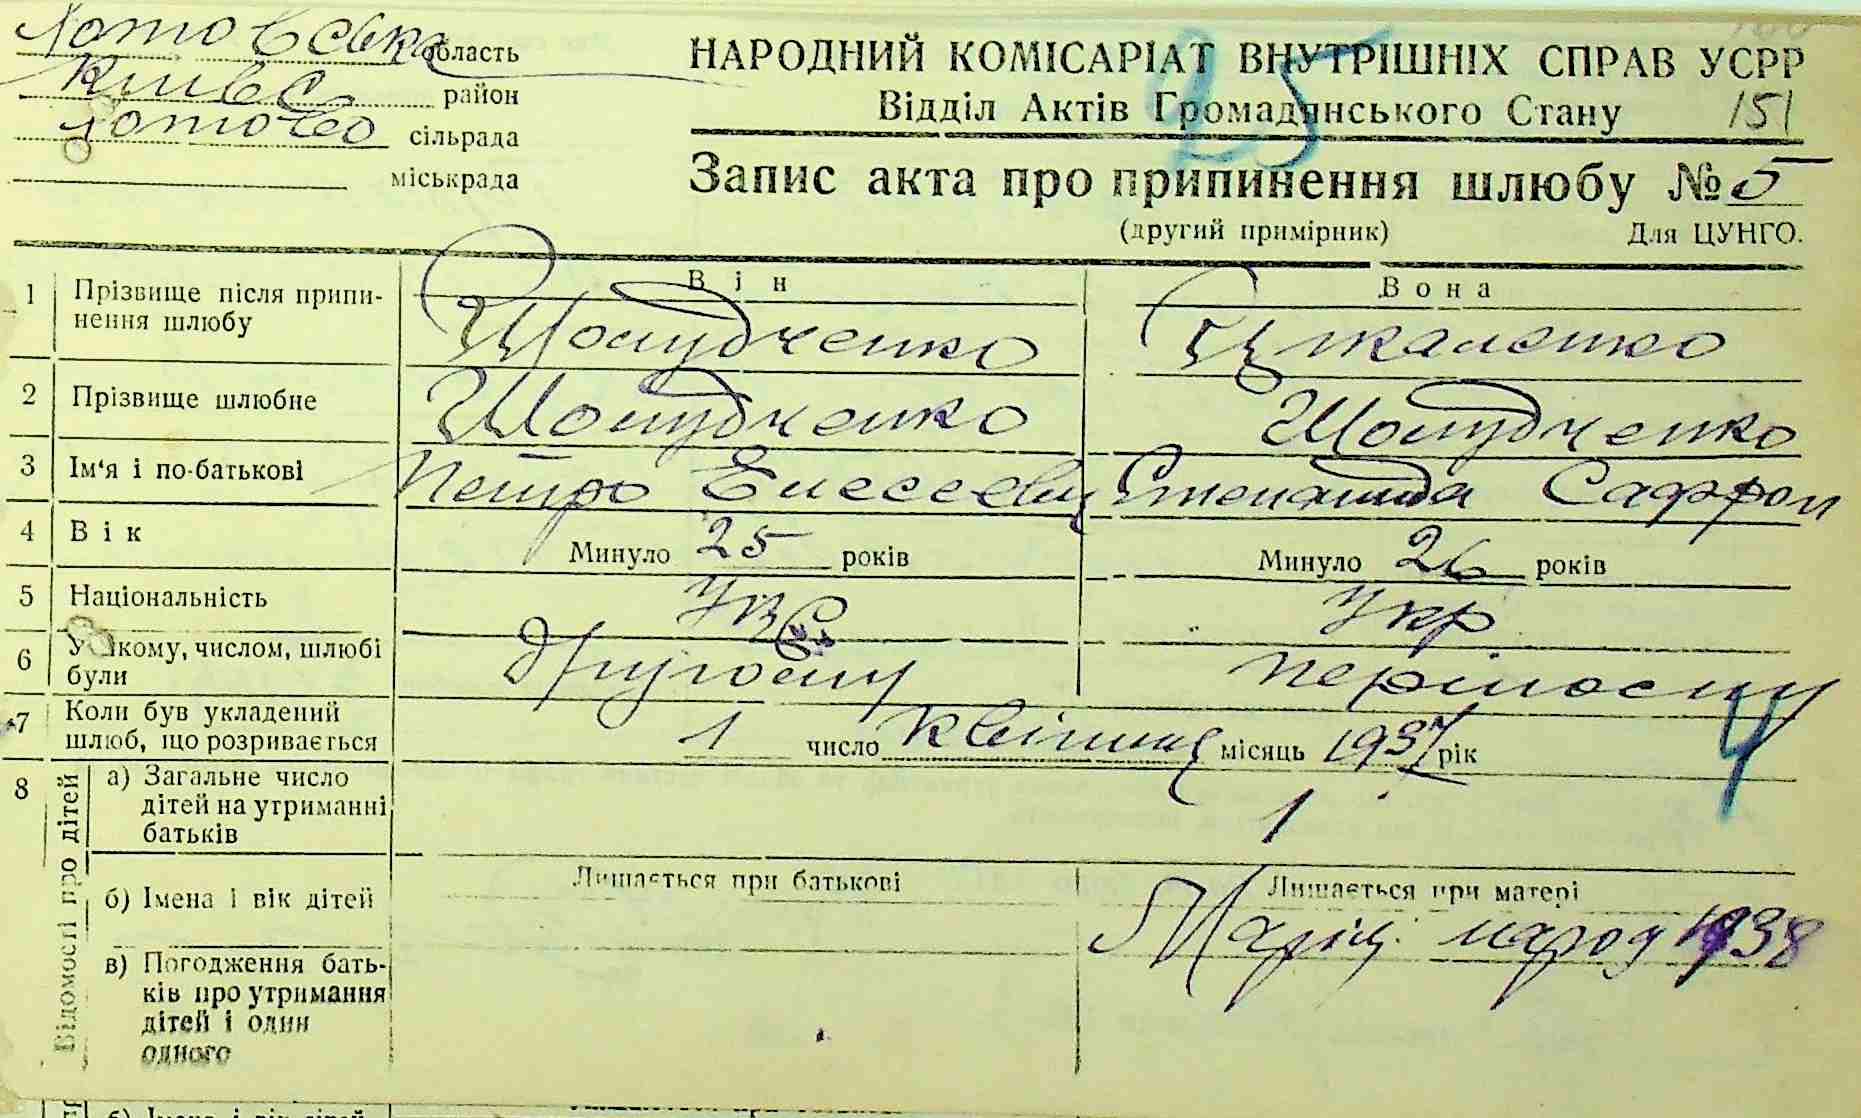 область
район
сільрада
міськрада
НАРОДНИЙ КОМІСАРІАТ ВНУТРІШНІХ СПРАВ УСРР
Відділ Актів Громадянського Стану 151
25
Запис акта про припинення шлюбу № 5
(другий примірник) Для ЦУНГО.
Він Вона
1 Прізвище після припи-
нення шлюбу
2 Прізвище шлюбне
3 Ім'я і по-батькові Петро Елесеевич Степанида Сафрон
4 Вік Минуло 25 років Минуло 26 років
5 Національність Укр
6 У якому, числом, шлюбі
були Другому першому
7 Коли був укладений
шлюб, що розривається 1 число квітня місяць 1937 рік
4
8 Відомості про дітей
а) Загальне число
дітей на утриманні
батьків 1
б) Імена і вік дітей Лишається при батькові Лишається при матері
Марія народ 1938
в) Погодження бать-
ків про утримання
дітей і один
одного